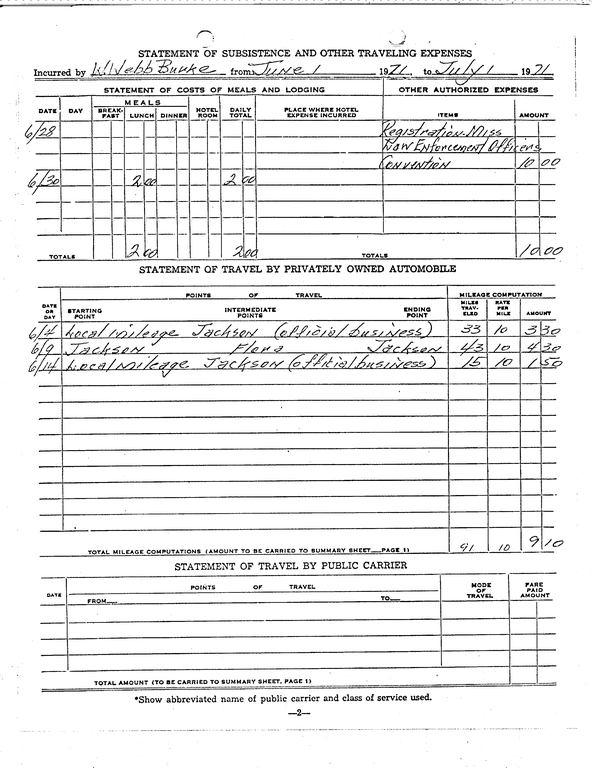 STATEMENT OF SUBSISTENCE AND OTHER TRAVELING EXPENSES
Incurred by W. Webb Burke from June 1 1971 to July 1 1971
STATEMENT OF COSTS OF MEALS AND LODGING OTHER AUTHORIZED EXPENSES
DATE DAY MEALS BREAK-FAST LUNCH DINNER HOTEL ROOM DAILY TOTAL PLACE WHERE HOTEL EXPENSE INCURRED ITEMS AMOUNT
6/28 Registration-Miss
Law Enforcement Officers
Convention 10 00
6/30 2 00 2 00
TOTALS 2 00 2 00 TOTALS 10 00
STATEMENT OF TRAVEL BY PRIVATELY OWNED AUTOMOBILE
POINTS OF TRAVEL MILEAGE COMPUTATION
DATE OR DAY STARTING POINT INTERMEDIATE POINTS ENDING POINT MILES TRAV-ELED RATE PER MILE AMOUNT
6/4 Local mileage Jackson (official business) 33 10 3 30
6/9 Jackson Flora Jackson 43 10 4 30
6/14 Local mileage Jackson (official business) 15 10 1 50
TOTAL MILEAGE COMPUTATIONS (AMOUNT TO BE CARRIED TO SUMMARY SHEET—PAGE 1) 91 10 9 10
STATEMENT OF TRAVEL BY PUBLIC CARRIER
DATE POINTS OF TRAVEL MODE OF TRAVEL FARE PAID AMOUNT
FROM— TO—
TOTAL AMOUNT (TO BE CARRIED TO SUMMARY SHEET, PAGE 1)
*Show abbreviated name of public carrier and class of service used.
—2—